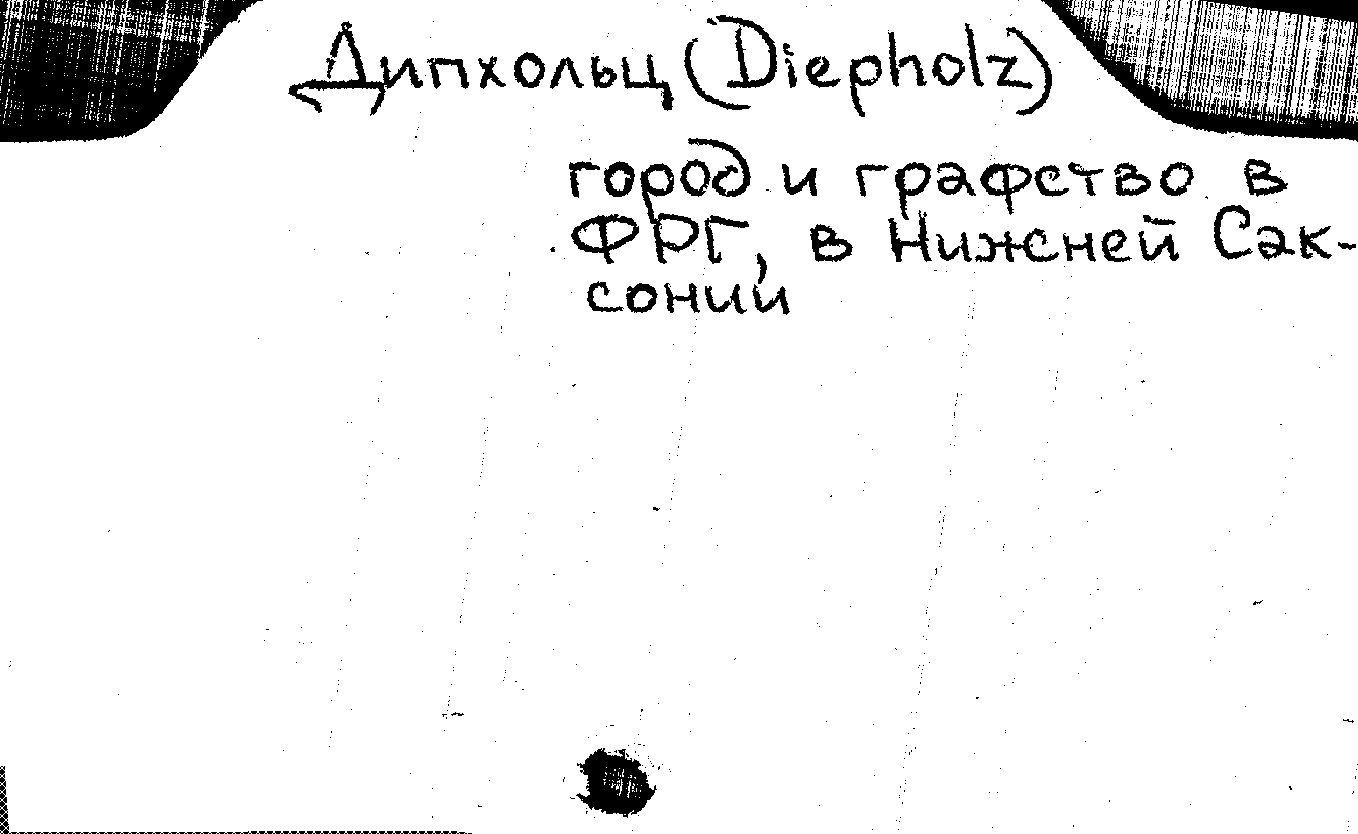 Дипхольц (Diepholz)
город и графство в
ФРГ, в Нижней Сак-
сонии